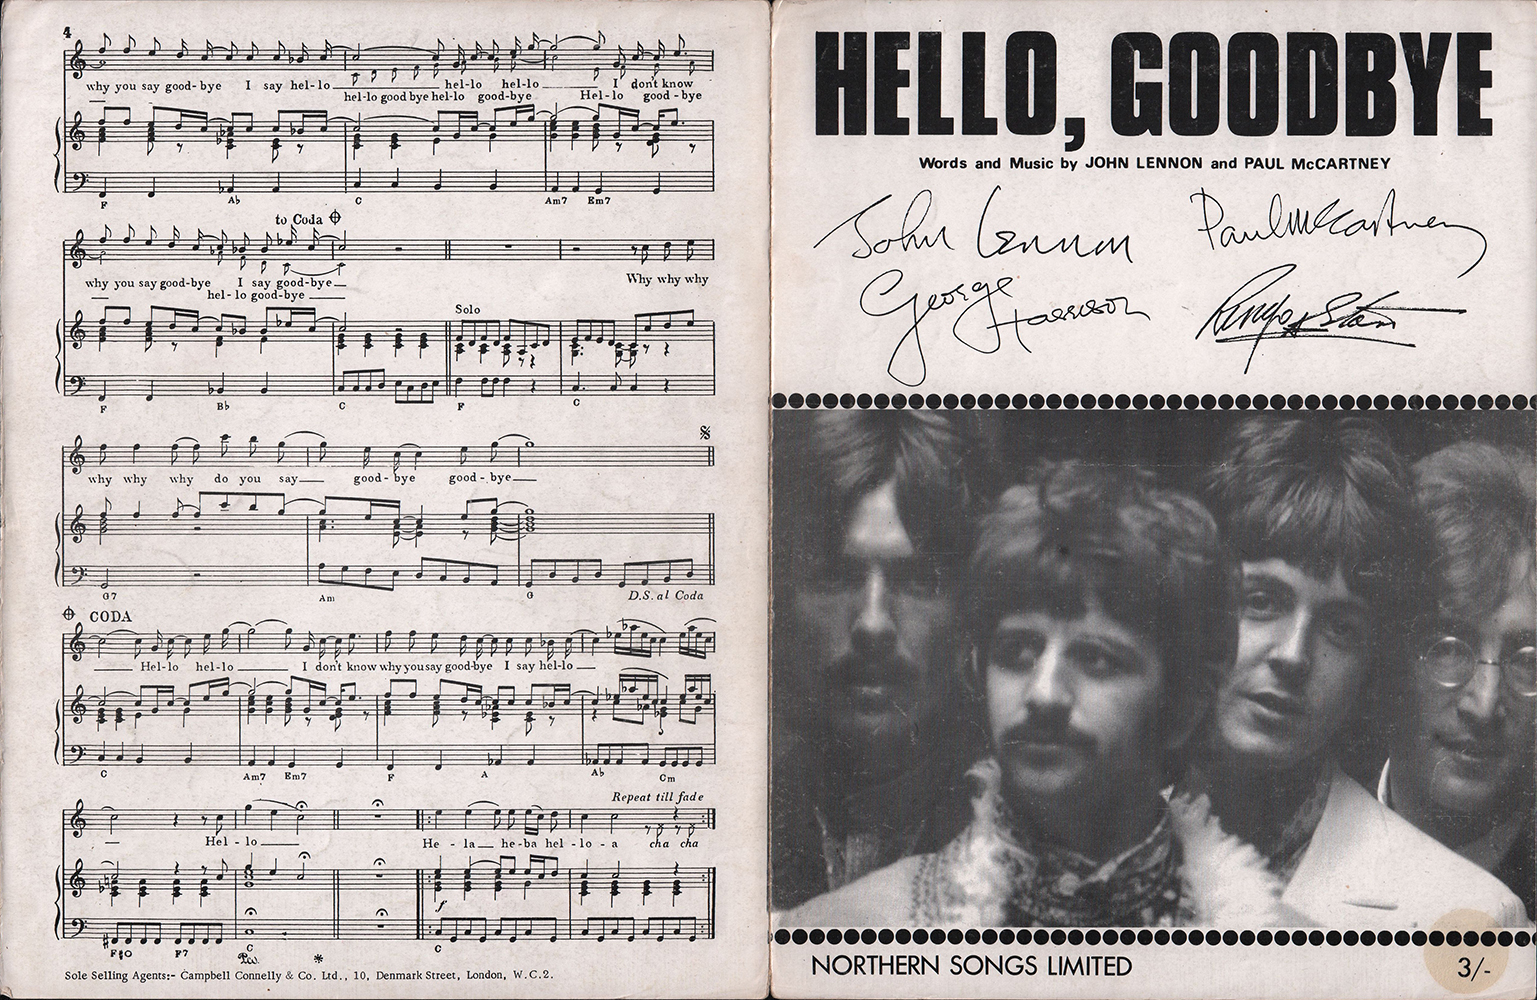 4
why you say good-bye I say hel-lo hel-lo hel-lo I don't know
hel-lo good bye hel-lo good-bye Hel-lo good-bye
F Ab C Am7 Em7
to Coda
why you say good-bye I say good-bye Why why why
hel-lo good-bye
Solo
F Bb C F C
why why why do you say good-bye good-bye
G7 Am G D.S. al Coda
CODA
Hel-lo hel-lo I don't know why you say good-bye I say hel-lo
C Am7 Em7 F A Ab Cm
Repeat till fade
Hel-lo He-la he-ba hel-lo-a cha cha
f
F#O F7 C C
Ped. *
Sole Selling Agents:- Campbell Connelly & Co. Ltd., 10, Denmark Street, London, W.C.2.
HELLO, GOODBYE
Words and Music by JOHN LENNON and PAUL McCARTNEY
John Lennon Paul McCartney
George Harrison Ringo Starr
NORTHERN SONGS LIMITED
3/-